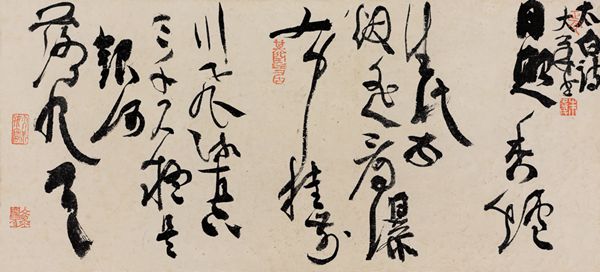 太白詩
日照香鑪
生紫
烟遙看瀑
布挂前
川飛流直下
三千尺疑是
銀河
落九天